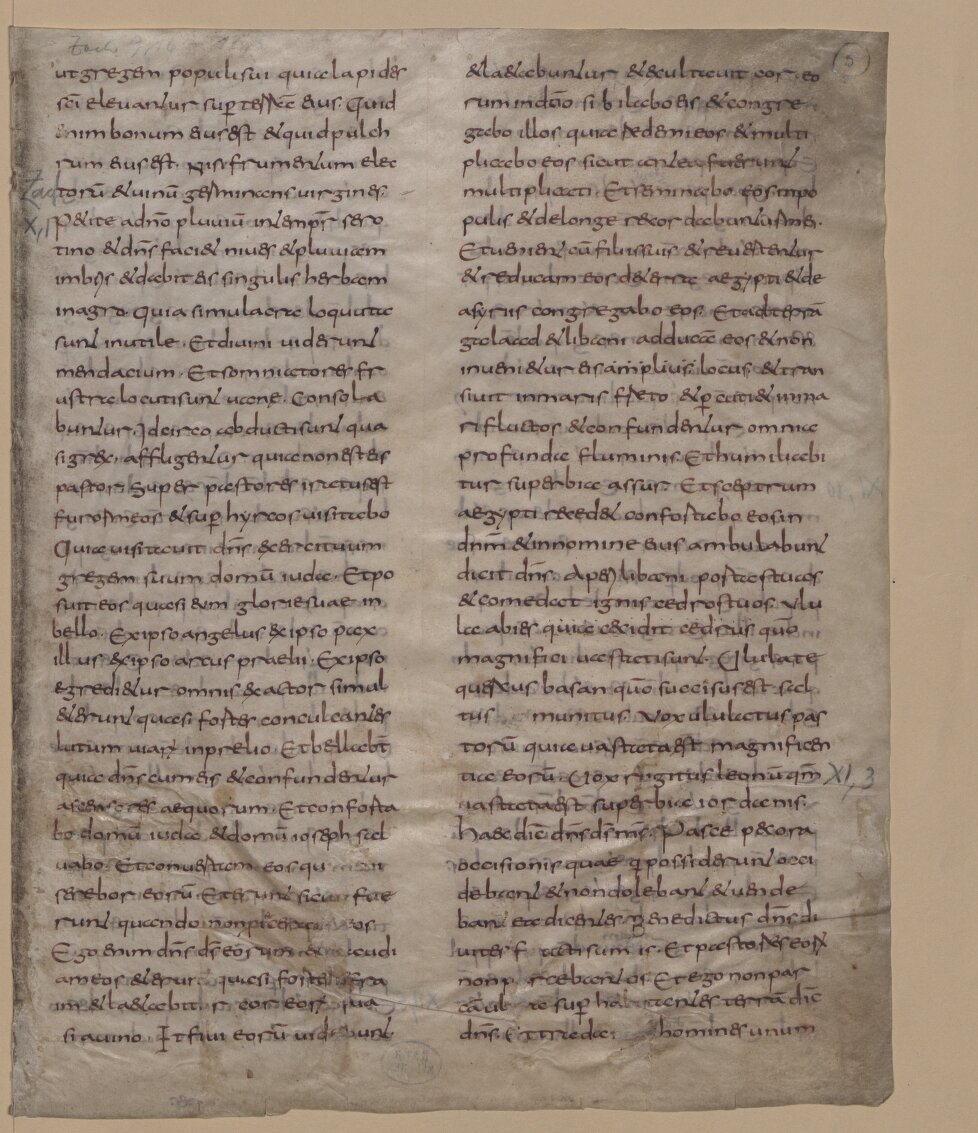 Zach 9,16
(5)
ut gregem populi sui quia lapides
sci elevantur sup terra eius. Quid
enim bonum eius est & quid pulch
rum eius est. Nisi frumentum elec
torū & vinū germinans virgines.
Zach
X,1
P&ite a dno pluviū in temp̄r sero
tino & dns faci& nives & pluviam
imbris & dabit eis singulis herbam
in agro. Quia simulacra loquuta
sunt inutile. Et divini viderunt
mendacium. Et somniatores fr
ustra locuti sunt vane. Consola
buntur. Idcirco abducti sunt qua
si grex. affligentur quia non est eis
pastor. Super pastores iratus est
furor meos & sup hyrcos visitabo
Quia visitavit dns exercituum
gregem suum domū iuda. Et po
suit eos quasi equm glorie suae in
bello. Ex ipso angelus ex ipso pax
illus ex ipso arcus praelii. Ex ipso
egredi&ur omnis exactor simul
& erunt quasi fortes conculcantes
lutum viarū in prelio. Et bellabt̄
quia dns cum eis & confundentur
ascensores aequorum. Et conforta
bo domū iuda & domū ioseph sal
vabo. Et convertam eos qu
serebor eorū. Et erunt sicut fue
runt quando non
Ego enim dns ds eorum & exaudi
am eos & erunt quasi fortes efra
im & la&abit cor eorū qua
si a vino. Et filii eorū videbunt
& la&abuntur & exultavit cor eo
rum in dno sibilabo eis & congre
gabo illos quia redemi eos & multi
plicabo eos sicut antea fuerunt
multiplicati. Et seminabo eos in po
pulis & de longe recordabuntur mei.
Et venient cū filiis suis & revertentur
& reducam eos de terra aegypti & de
asyriis congregabo eos. Et ad terrā
galaad & libani adducā eos & non
inveni&ur eis amplius locus. & tran
sivit in maris freto & percuti& in ma
ri fluctos & confundentur omnia
profunda fluminis. Et humiliabi
tur superbia assur. Et sceptrum
aegypti reced& confortabo eos in
dnm & in nomine eius ambulabunt
dicit dns. Aperi libani portas tuas
& comedat ignis cedros tuos. Ulu
la abies quia cecidit cedrus qm̄
magnifici vastati sunt. Ululate
quercus basan quō succisus est sal
tus munitus. Vox ululatus pas
torū quia vastata est magnificen
tia eorū. Vox rugitus leonū qm̄
XI,3
vastata est superbia iordanis.
Haec dic̄ dns ds ms. Pasce pecora
occisionis quae q possiderunt occi
debant & non dolebant & vende
bant ea dicentes benedictus dns di
vites facti sumis. Et pastores eorū
non parcebant eos Et ego non par
cā ultre sup habitantes terrā dic̄
dns. Et tradā homines unum